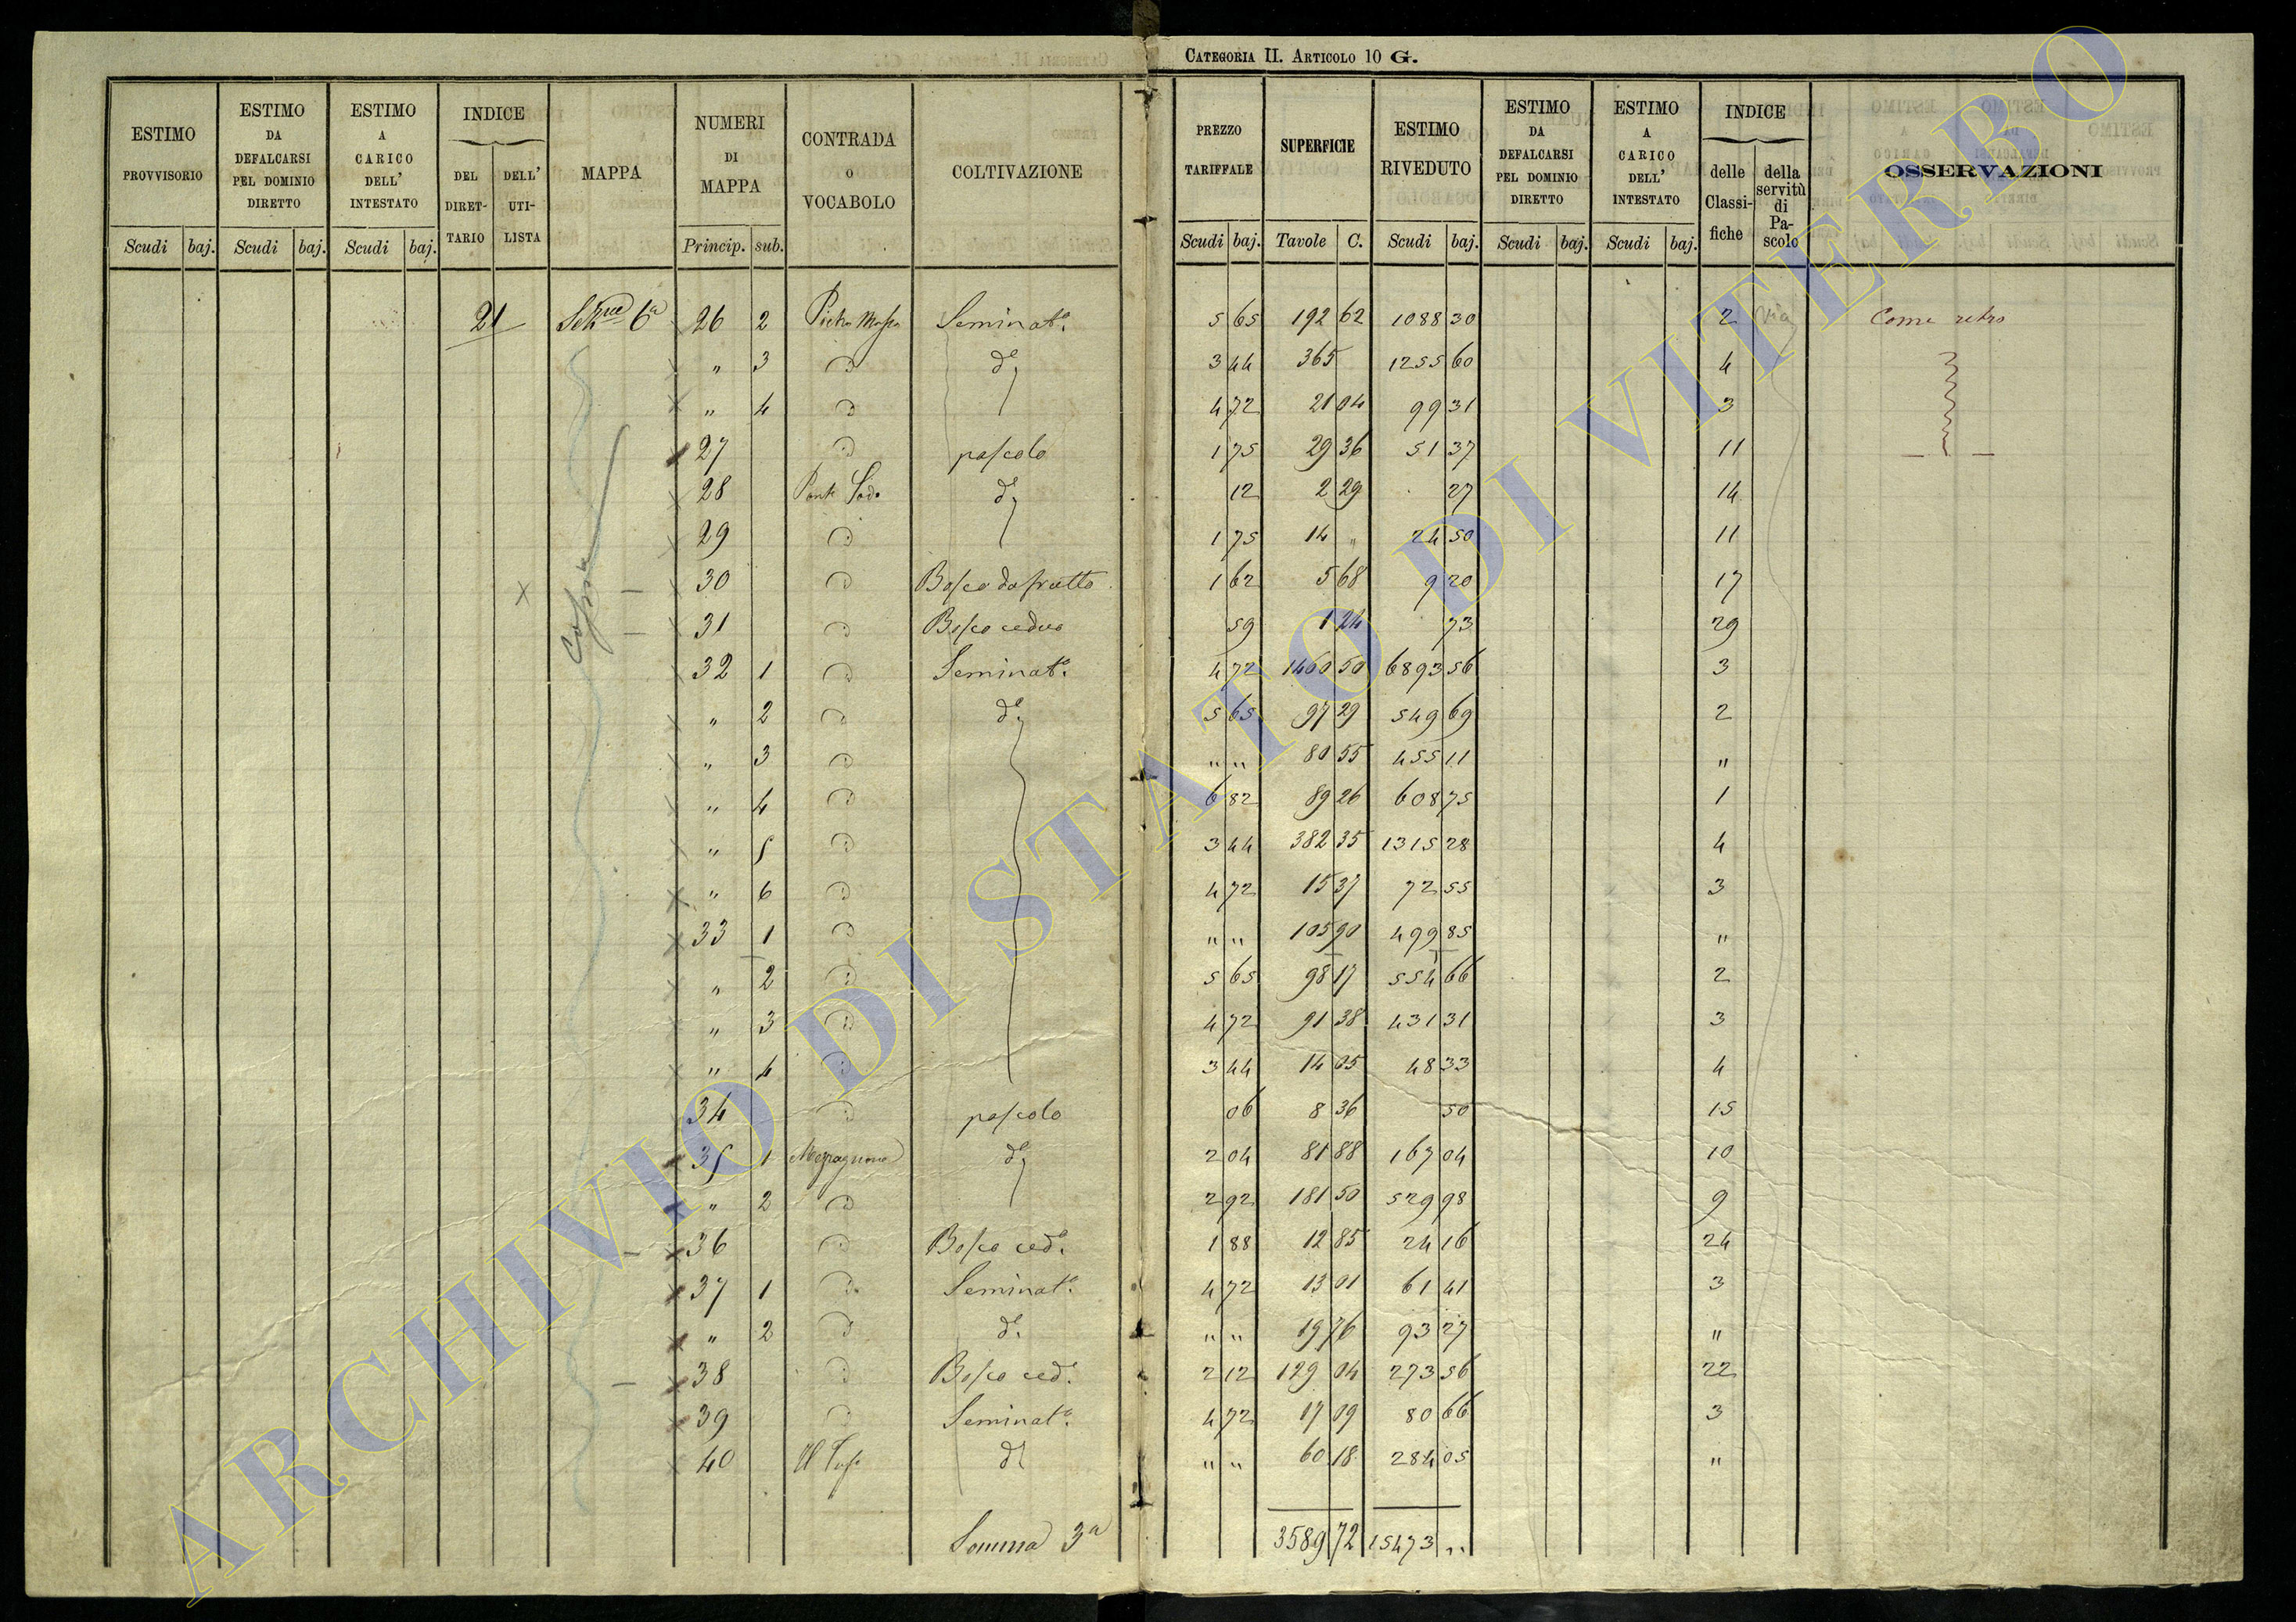 CATEGORIA II. ARTICOLO 10 G.
ESTIMO PROVVISORIO
ESTIMO DA DEFALCARSI PEL DOMINIO DIRETTO
ESTIMO A CARICO DELL' INTESTATO
INDICE
DEL DIRET-TARIO
DELL' UTI-LISTA
MAPPA
NUMERI DI MAPPA
CONTRADA O VOCABOLO
COLTIVAZIONE
PREZZO TARIFFALE
SUPERFICIE
ESTIMO RIVEDUTO
ESTIMO DA DEFALCARSI PEL DOMINIO DIRETTO
ESTIMO A CARICO DELL' INTESTATO
INDICE
delle Classi-fiche
della servitù di Pa-scolo
OSSERVAZIONI
Scudi baj. Scudi baj. Scudi baj. Princip. sub. Scudi baj. Tavole C. Scudi baj. Scudi baj. Scudi baj.
21 6a 26 2 Seminato. 5 65 192 62 1088 30 2 Come retro
" 3 do 3 44 365 1255 60 4
" 4 4 72 21 04 99 31 3
27 pascolo 1 75 29 36 51 37 11
28 Ponte Sodo do 12 2 29 27 14
29 1 75 14 " 24 50 11
30 Bosco da frutto 1 62 5 68 9 20 17
31 Bosco ceduo 59 1 24 73 29
32 1 Seminato. 4 72 1460 50 6893 56 3
" 2 do 5 65 97 29 549 69 2
" 3 " " 80 55 455 11 "
" 4 6 82 89 26 608 75 1
" 5 3 44 382 35 1315 28 4
" 6 4 72 15 37 72 55 3
33 1 " " 105 90 499 85 "
" 2 5 65 98 17 554 66 2
" 3 4 72 91 38 431 31 3
" 4 3 44 14 05 48 33 4
34 pascolo 06 8 36 50 15
35 1 do 2 04 81 88 167 04 10
" 2 2 92 181 50 529 98 9
36 Bosco cedo. 1 88 12 85 24 16 24
37 1 Seminato. 4 72 13 01 61 41 3
" 2 do. " " 19 76 93 27 "
38 Bosco cedo. 2 12 129 04 273 56 22
39 Seminato. 4 72 17 09 80 66 3
40 do " " 60 18 284 05 "
Somma 3a 3589 72 15473 "
ARCHIVIO DI STATO DI VITERBO